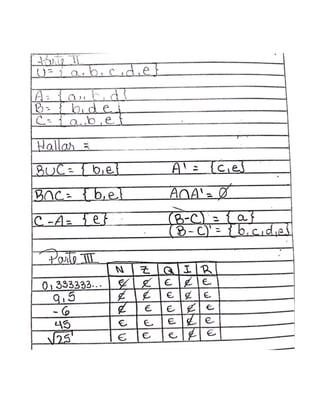 Parte II
U = { a, b, c, d, e }
A = { a, b, d }
B = { b, d, e }
C = { a, b, e }
Hallar =
B∪C = { b, e } A' = { c, e }
B∩C = { b, e } A∩A' = ∅
C - A = { e } (B-C) = { a }
(B-C)' = { b, c, d, e }
Parte III
N Z Q I R
0,333333... ∉ ∉ ∈ ∉ ∈
9,5 ∉ ∉ ∈ ∉ ∈
-6 ∉ ∈ ∈ ∉ ∈
45 ∈ ∈ ∈ ∉ ∈
√25 ∈ ∈ ∈ ∉ ∈